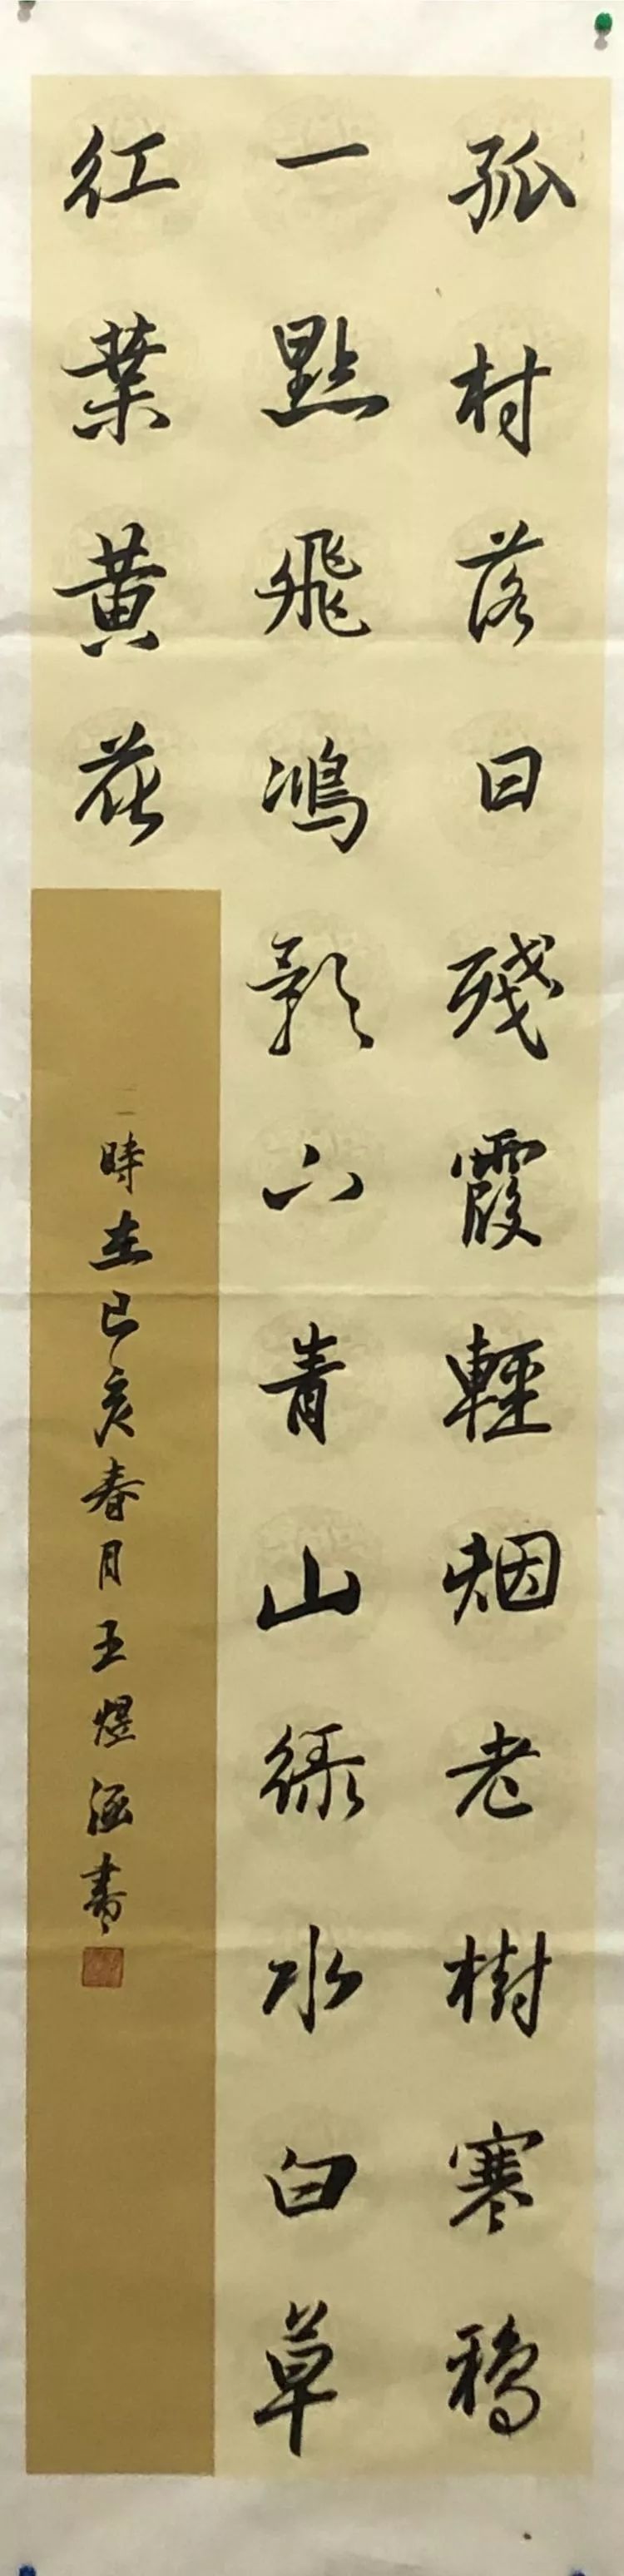 孤村落日殘霞輕烟老樹寒鴉
一點飛鴻影下青山綠水白草
紅葉黃花
時在己亥春月王煜涵書